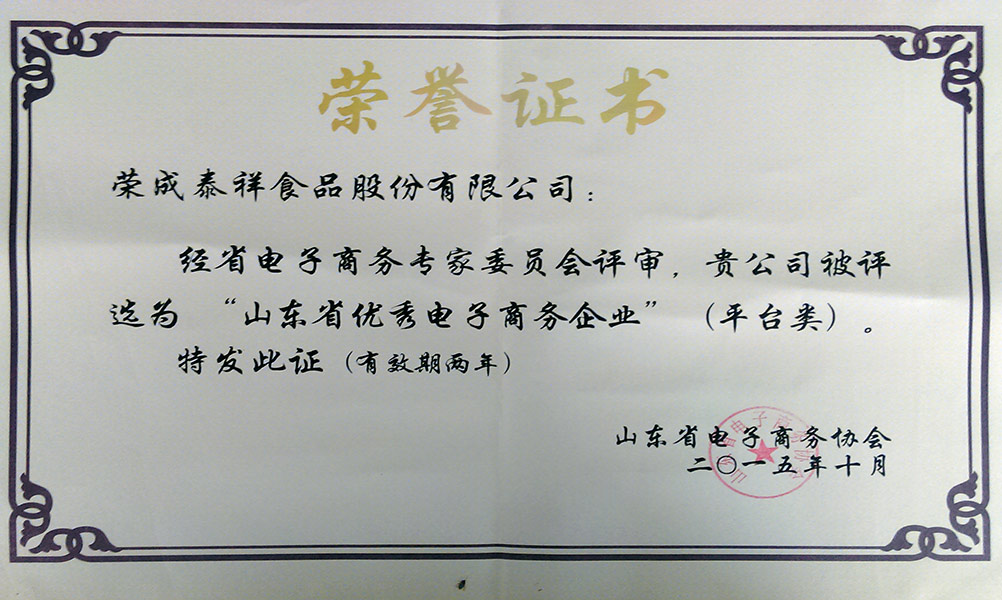 荣誉证书
荣成泰祥食品股份有限公司：
经省电子商务专家委员会评审，贵公司被评
选为 “山东省优秀电子商务企业”（平台类）。
特发此证（有效期两年）
山东省电子商务协会
二〇一五年十月
山东省电子商务协会